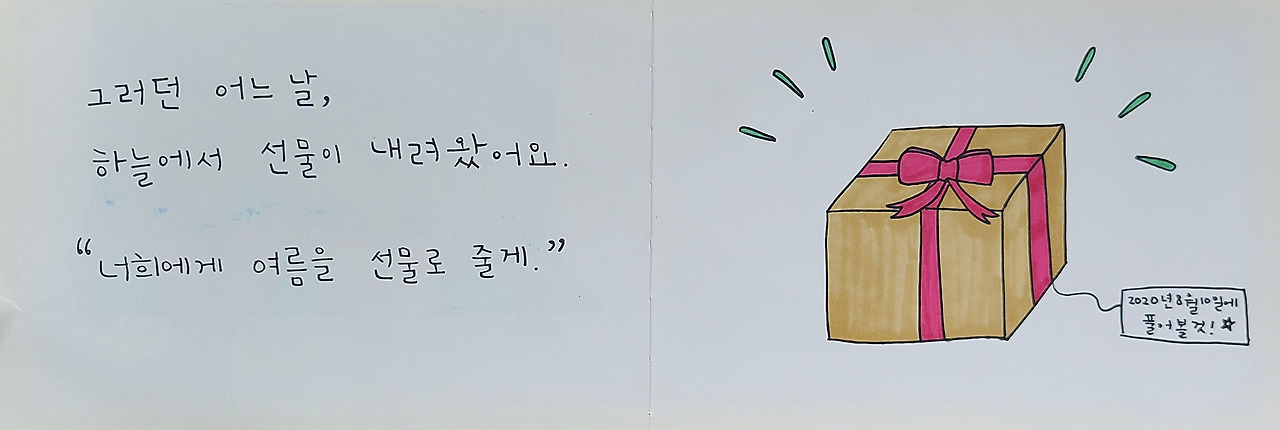 그러던 어느 날,
하늘에서 선물이 내려왔어요.
“너희에게 여름을 선물로 줄게.”
2020년 8월 10일에
풀어볼 것! ☆